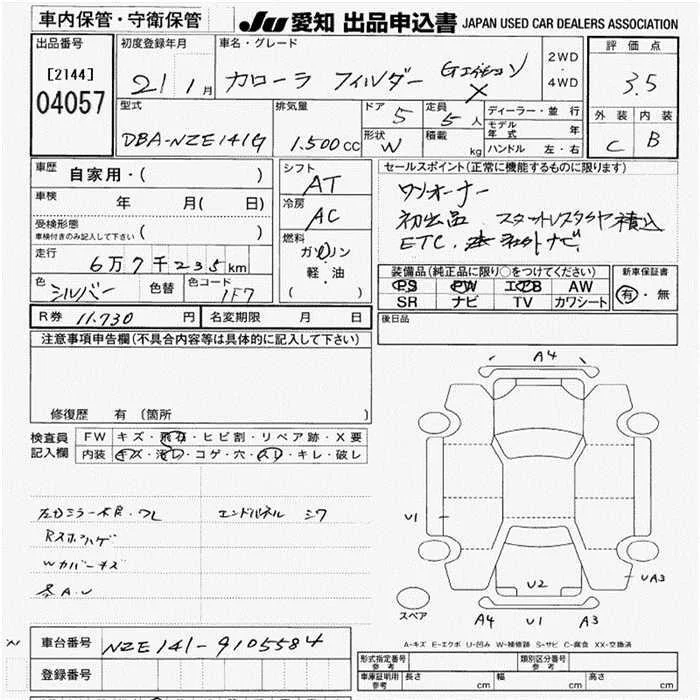 車内保管・守衛保管
JU 愛知 出品申込書 JAPAN USED CAR DEALERS ASSOCIATION
出品番号
[2144]
04057
初度登録年月
21 1月
車名・グレード
カローラ フィルダー Gエディション X
2WD
・
4WD
評価点
3.5
外装 内装
C B
型式
DBA-NZE141G
排気量
1.500cc
ドア
5
定員
5人
形状
W
積載
kg
ディーラー・並行
モデル年式 年
ハンドル 左・右
車歴
自家用・( )
車検
年 月( 日)
受検形態
車検付きのみ記入して下さい ( )
走行
6万7千235km
色
シルバー
色替
色コード
1F7
シフト
AT
冷房
AC
燃料
ガソリン
軽・油
( )
セールスポイント(正常に機能するものに限ります)
ワンオーナー
初出品 スタットレスタイヤ積込
ETC. 社外ナビ
装備品(純正品に限り○をつけてください)
PS PW エアB AW
SR ナビ TV カワシート
新車保証書
有・無
R券 11.730 円
名変期限 月 日
後日品
注意事項申告欄(不具合内容等は具体的に記入して下さい)
修復歴 有 (箇所 )
検査員記入欄
FW キズ・飛石・ヒビ割・リペア跡・X要
内装 キズ・汚レ・コゲ・穴・スレ・キレ・破レ
左右ミラー木目・ワレ エンドパネル シワ
Rスポハゲ
Wカバーキズ
各A.U
A4
U1
U2
UA3
スペア
A4 U1 A3
A-キズ E-エクボ U-凹み W-補修跡 S-サビ C-腐食 XX-交換済
車台番号 NZE141-9105584
登録番号
形式指定番号 参考
類別区分番号 参考
車庫証明用 参考 長さ cm 幅 cm 高さ cm